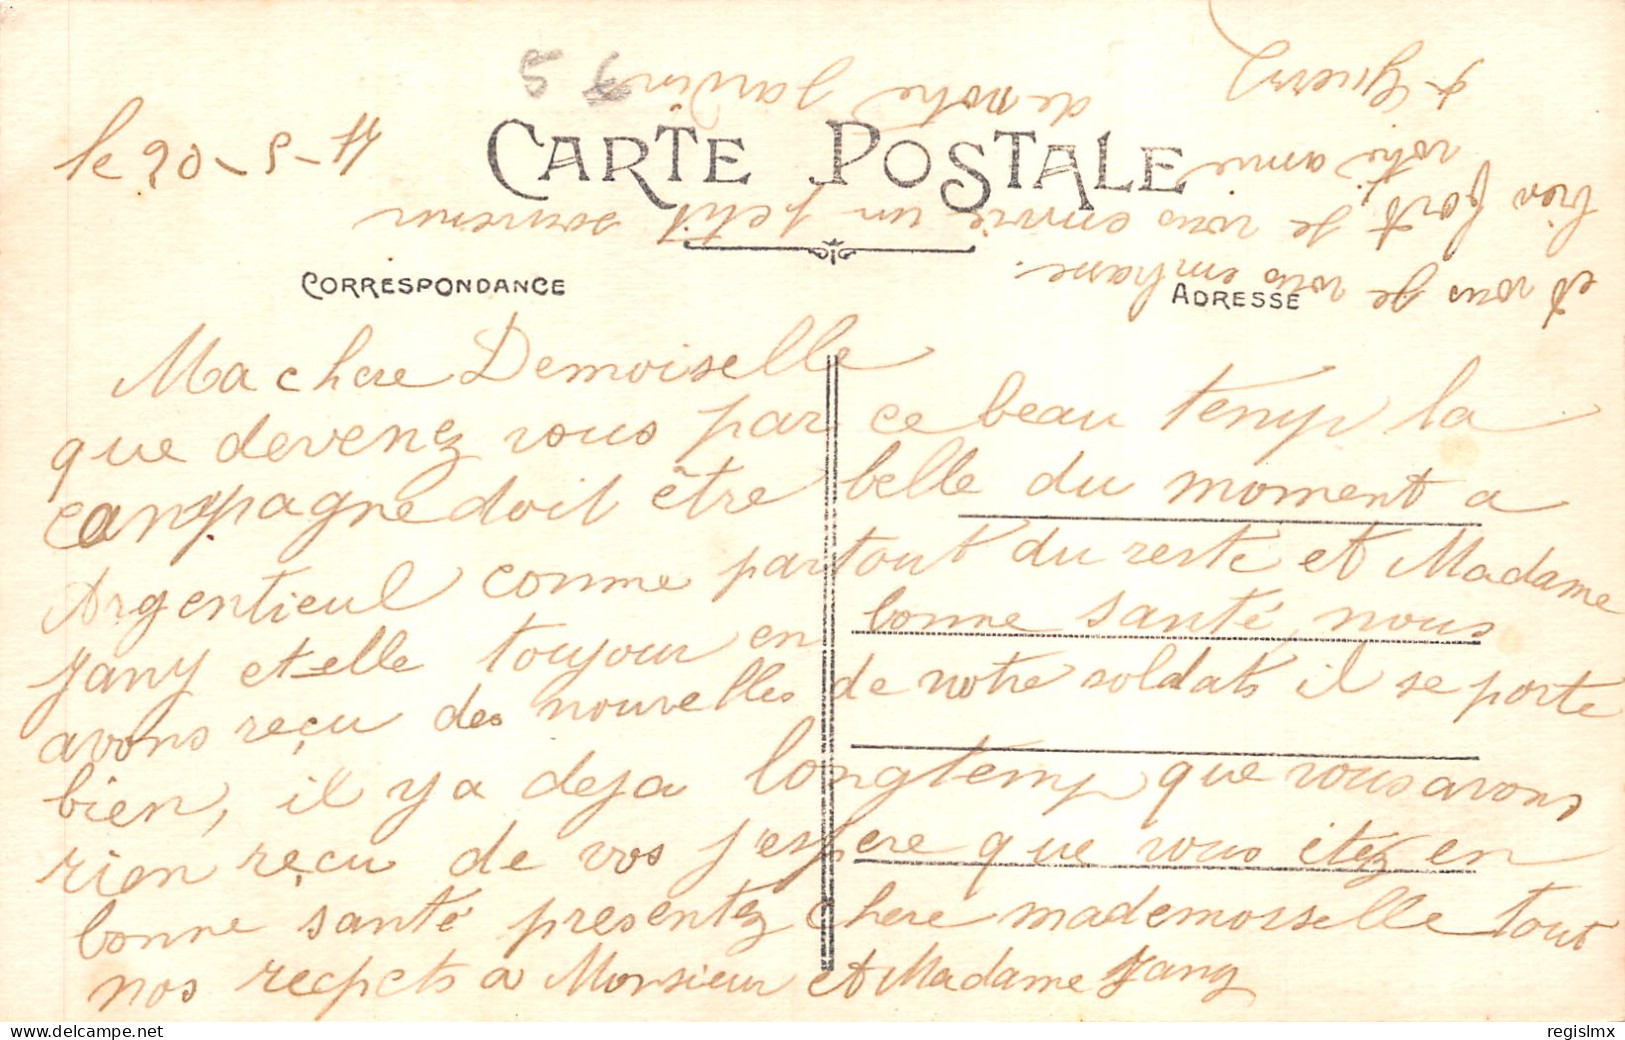 5 6
le 20-5-17
CARTE POSTALE
CORRESPONDANCE
ADRESSE
Ma chere Demoiselle
que devenez vous par ce beau temp la
campagne doit être belle du moment a
Argentieul comme partout du reste et Madame
Jany et elle toujour en bonne santé, nous
avons reçu des nouvelles de notre soldats il se porte
bien, il y a deja longtemp que vous avons
rien reçu de vos j'espere que vous etez en
bonne santé presentez chere mademoiselle tout
nos recpets a Monsieur et Madame Jany
et vous je vous embrasse
bien fort je vous envoie un petit souvenir
de notre jardin
votre amie